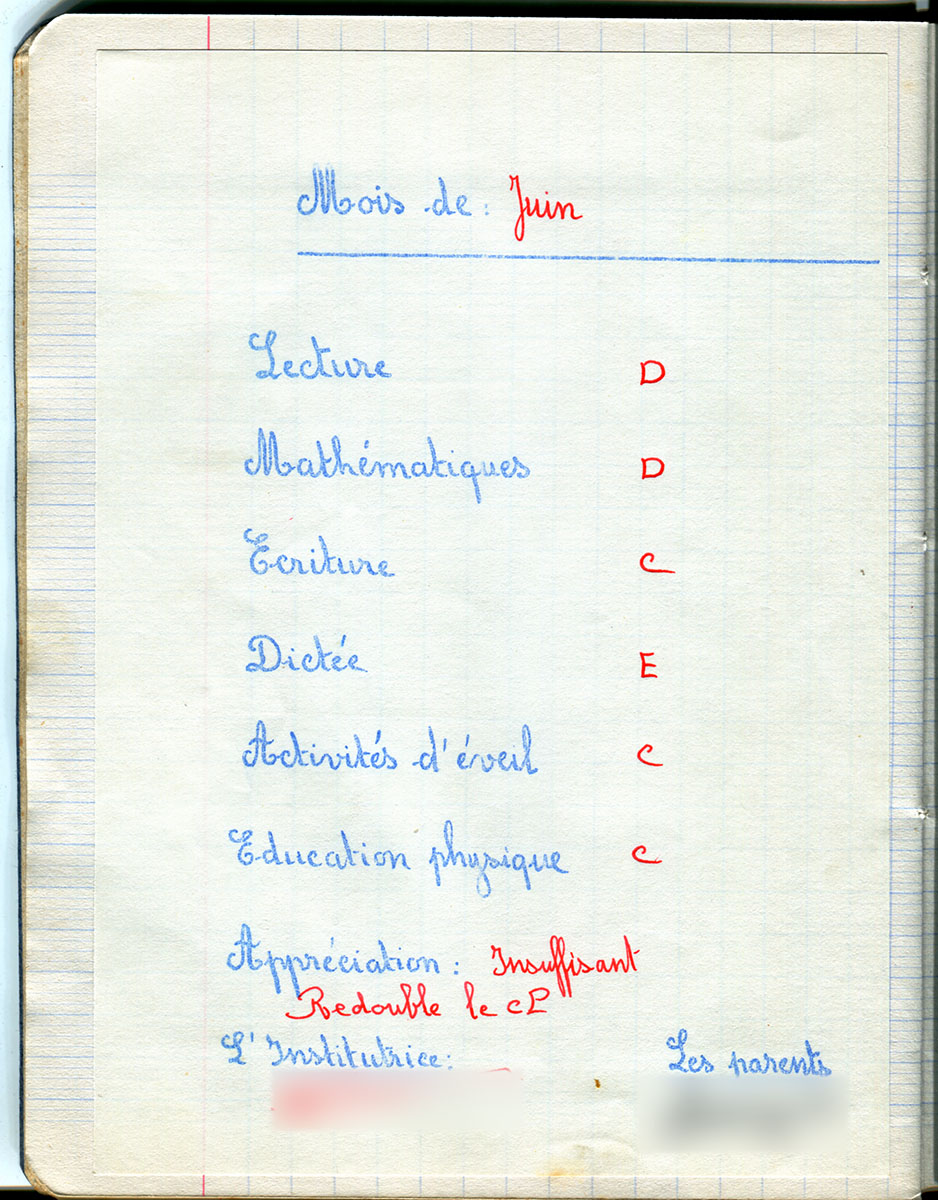 Mois de : Juin
Lecture D
Mathématiques D
Ecriture C
Dictée E
Activités d'éveil C
Education physique C
Appréciation : Insuffisant
Redouble le CP
L'Institutrice : Les parents